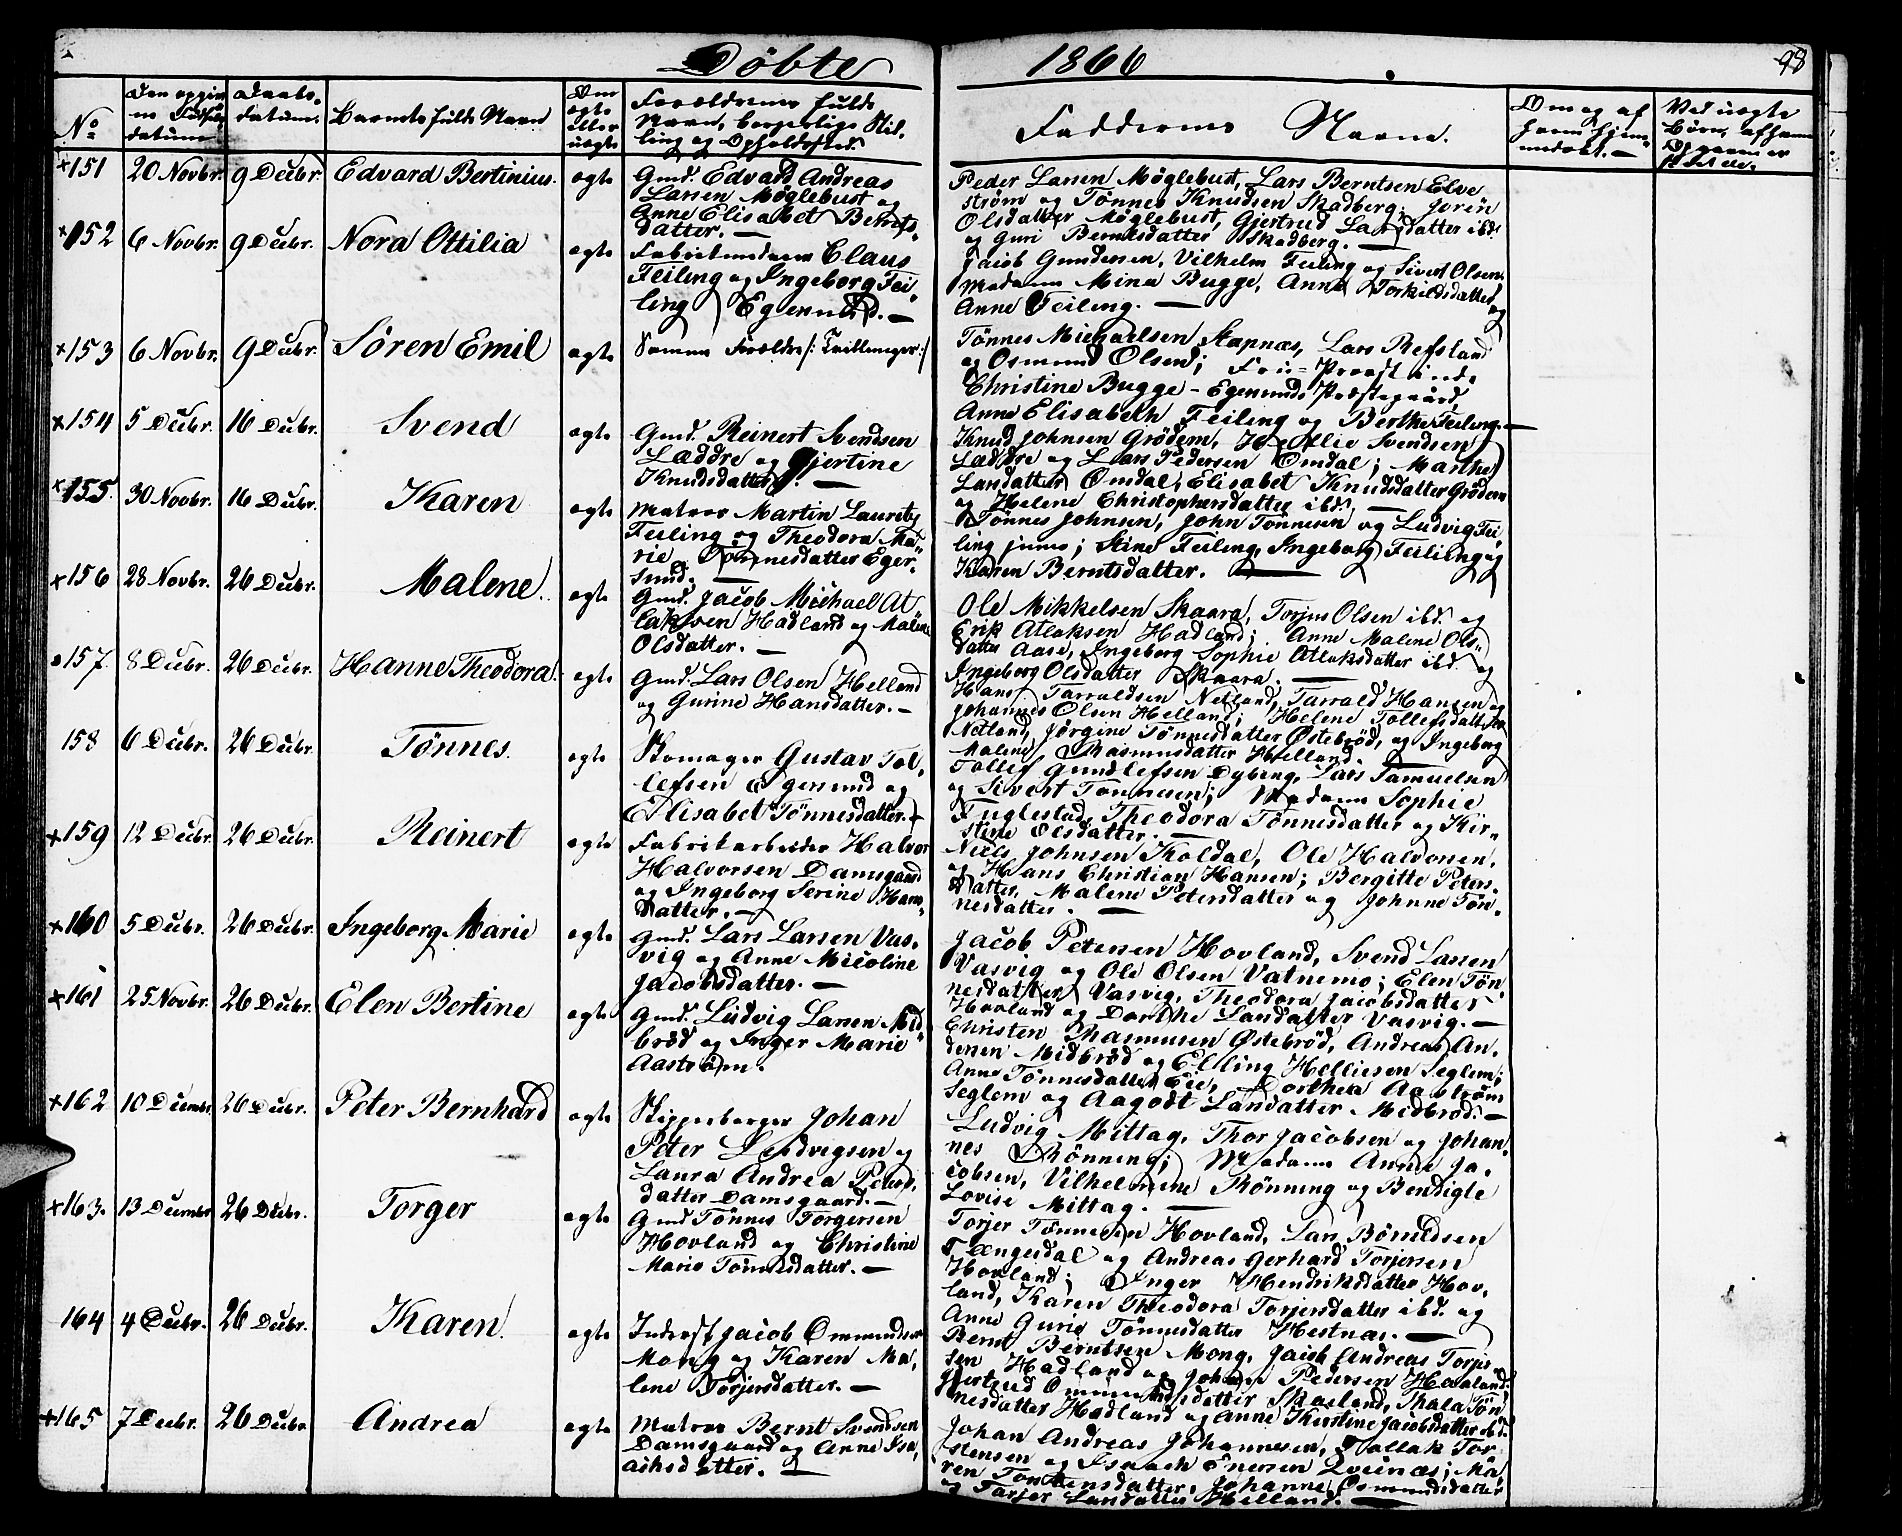 Döbte 1866 98
No
Den opgivne Fødselsdatum
Daabsdatum
Barnets fulde Navn
Om ægte eller uægte
Forældrenes fulde Navn, borgerlige Stilling og Opholdssted
Faddernes Navne.
Om og af hvem hjemmedøbt. —
×151 20 Novbr. 9 Decbr. Edvard Bertinius. ægte
Gmd. Edvard Andreas
Larsen Möglebust og
Anne Elisabet Bernts-
datter. —
Peder Larsen Möglebust, Lars Berntsen Elve
ström og Tönnes Knudsen Skadberg; Joren
Olsdatter Möglebust, Gjertrud Larsdatter ibd.
og Guri Berntsdatter Skadberg. —
×152 6 Novbr. 9 Decbr. Nora Ottilia ægte
Claus
Feiling og Ingeborg Fei-
ling Egersund. —
Jacob Gundersen, Vilhelm Feiling og Sivert Olsen.
Madame Mina Bugge, Anne Torkildsdatter
og
Anne Feiling. —
×153 6 Novbr. 9 Decbr. Sören Emil ægte
Samme Forældre /: Tvillinger :/
Tönnes Michaelsen Stapnæs, Lars Refsland
og Osmund Olsen;
Christine Bugge - Egersunds Præstegaard,
Anne Elisabeth Feiling og Berthe Feiling. —
×154 5 Decbr. 16 Decbr. Svend ægte
Gmd. Reinert Svendsen
Læddre og Gjertine
Knudsdatter. —
Knud Johnsen Grödem, Svendsen
Læddre og Lars Pedersen Omdal; Marthe
Larsdatter Omdal, Elisabet Knudsdatter Grödem
og Helene Christophersdatter ibd. —
×155. 30 Novbr. 16 Decbr. Karen ægte
Matros Martin Lauritz
Feiling og Theodora Ma-
rie Tönnesdatter Eger-
sund. —
Tönnes Johnsen, John Tönnesen og Ludvig Fei-
ling junior; Stine Feiling, Ingeborg Feiling og
Karen Berntsdatter. —
×156 28 Novbr. 26 Decbr. Malene. ægte
Gmd. Jacob Michael At-
laksen Hadland og Malene
Olsdatter. —
Ole Mikkelsen Skaara, Torjus Olsen ibd. og
Erik Atlaksen Hadland; Anne Malene Ols-
datter Aase, Ingeborg Sophie Atlaksdatter ibd. og
Ingeborg Olsdatter Skaara. —
157. 8 Decbr. 26 Decbr. Hanne Theodora. ægte
Gmd. Lars Olsen Helland
og Gurine Hansdatter. —
Hans Tarraldsen Netland, Tarrald Hansen og
Johannes Olsen Helland; Helene Tollefsdatter
Netland, Jörgine Tönnesdatter Östebröd, og Ingeborg
Malene Rasmusdatter Helland.
158 6 Decbr. 26 Decbr. Tönnes. ægte
Skomager Gustav Tol-
lefsen Egersund og
Elisabet Tönnesdatter. —
Tollef Gundlefsen Dybing, Lars Samuelsen
og Sivert Tönnesen; Madame Sophie
Fuglestad, Theodora Tönnesdatter og Kir-
stine Olsdatter. —
×159 12 Decbr. 26 Decbr. Reinert ægte
Fabrikarbeider Halvor
Halvorsen Damsgaard
og Ingeborg Serine Hans-
datter. —
Niels Johnsen Koldal, Ole Halvorsen,
og Hans Christian Hansen; Bergitte Peters-
datter, Malene Petersdatter og Johnne Tön-
nesdatter. —
×160 5 Decbr. 26 Decbr. Ingeborg Marie ægte
Gmd. Lars Larsen Vas-
vig og Anne Micoline
Jacobsdatter. —
Jacob Petersen Hovland, Svend Larsen
Vasvig og Ole Olsen Vatnemo; Elen Tön
nesdatter Vasvig, Theodora Jacobsdatter
Hovland og Dorthe Larsdatter Vasvig. —
×161 25 Novbr. 26 Decbr. Elen Bertine ægte
Gmd. Ludvig Larsen Mid-
bröd og Inger Marie
Aaström.
Christen Rasmusen Östebröd, Andreas An-
dersen Midbröd og Elling Helliesen Seglem;
Anne Tönnesdatter Eie, Dorthea Aaström
Seglem og Aagodt Larsdatter Midbröd. —
×162 10 Decembr. 26 Decbr. Peter Bernhard ægte
Skipperborger Johan
Peter Ludvigsen og
Laura Andrea Peders-
datter Damsgaard. —
Ludvig Mittag, Thor Jacobsen og Johan-
nes Rönning; Madame Anne Ja-
cobsen, Vilhelmine Rönning og Bendigte
Lovise Mittag. —
×163. 13 Decembr 26 Decbr. Torger ægte
Gmd Tönnes Torgersen
Hovland og Christine
Marie Tönnesdatter. —
Torjer Tönnesen Hovland, Lars Börildsen
Tengesdal og Andreas Gerhard Torjersen
Hovland; Inger Hendriksdatter Hov-
land, Karen Theodora Torjersdatter ibd. og
Anne Gurie Tönnesdatter Hestnæs. —
164 4 Decbr. 26 Decbr. Karen. ægte
Inderst Jacob Ommundsen
Mong og Karen Ma-
lene Torjersdatter. —
Bernt Berntsen Mong, Jacob Andreas Torjer-
sen Hadland og Johan Pedersen Hovland.
Gjertrud Ommundsdatter Skaaland, Thala Tön
nesdatter Hadland og Anne Kirstine Jacobsdatter ibd.
×165 7 Decbr. 26 Decbr. Andrea ægte
Matros Bernt Svendsen
Damsgaard og Anne Isa-
achsdatter. —
Johan Andreas Johannesen, Tollak Tor-
stensen og Isaach Enersen Qveinæs; Ma-
ren Torstensdatter, Johanne Osmundsdatter
og Torjer Larsdatter Helland. —